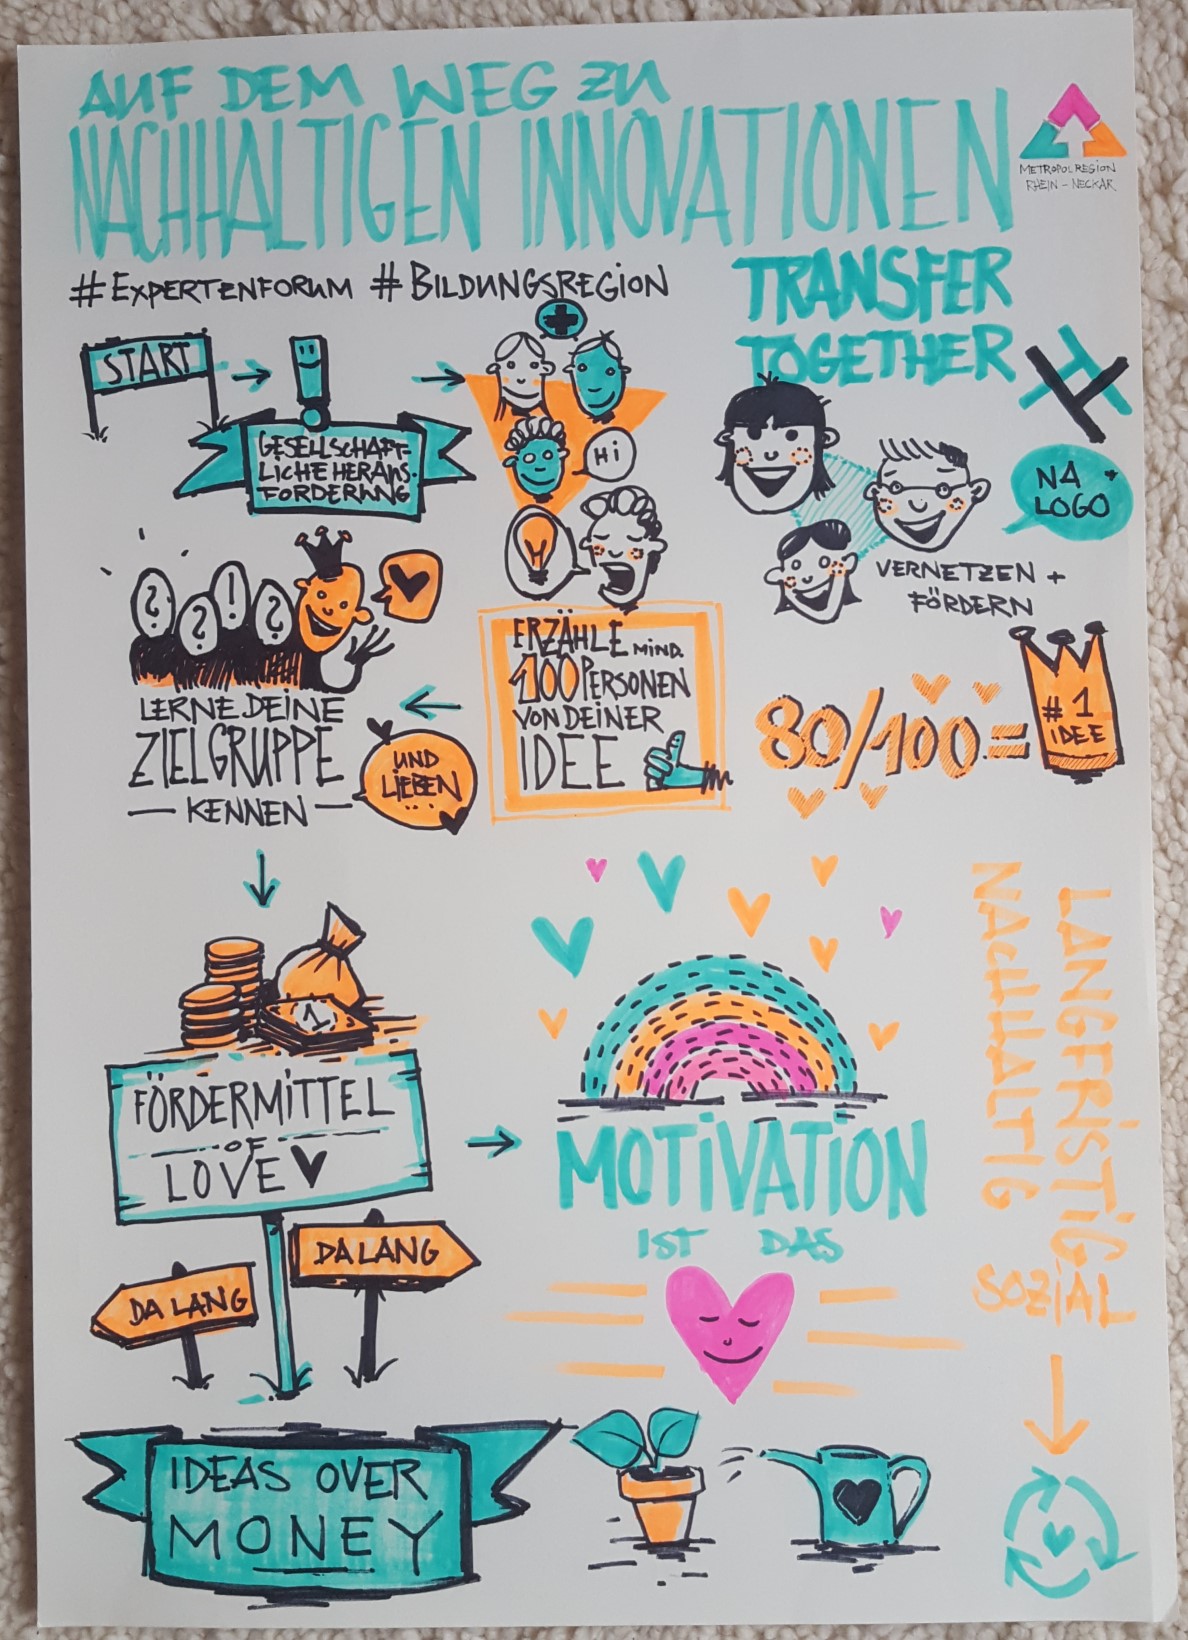 AUF DEM WEG ZU
NACHHALTIGEN INNOVATIONEN
METROPOLREGION
RHEIN-NECKAR
#EXPERTENFORUM #BILDUNGSREGION
TRANSFER
TOGETHER
START
GESELLSCHAFT-
LICHE HERAUS-
FORDERUNG
HI
NA
LOGO
VERNETZEN +
FÖRDERN
? ? ! ?
ERZÄHLE MIND.
100 PERSONEN
VON DEINER
IDEE
LERNE DEINE
ZIELGRUPPE
— KENNEN —
UND
LIEBEN
...
80/100 =
#1
IDEE
1
FÖRDERMITTEL
OF
LOVE
DA LANG
DA LANG
MOTIVATION
IST DAS
LANGFRISTIG
NACHHALTIG
SOZIAL
IDEAS OVER
MONEY